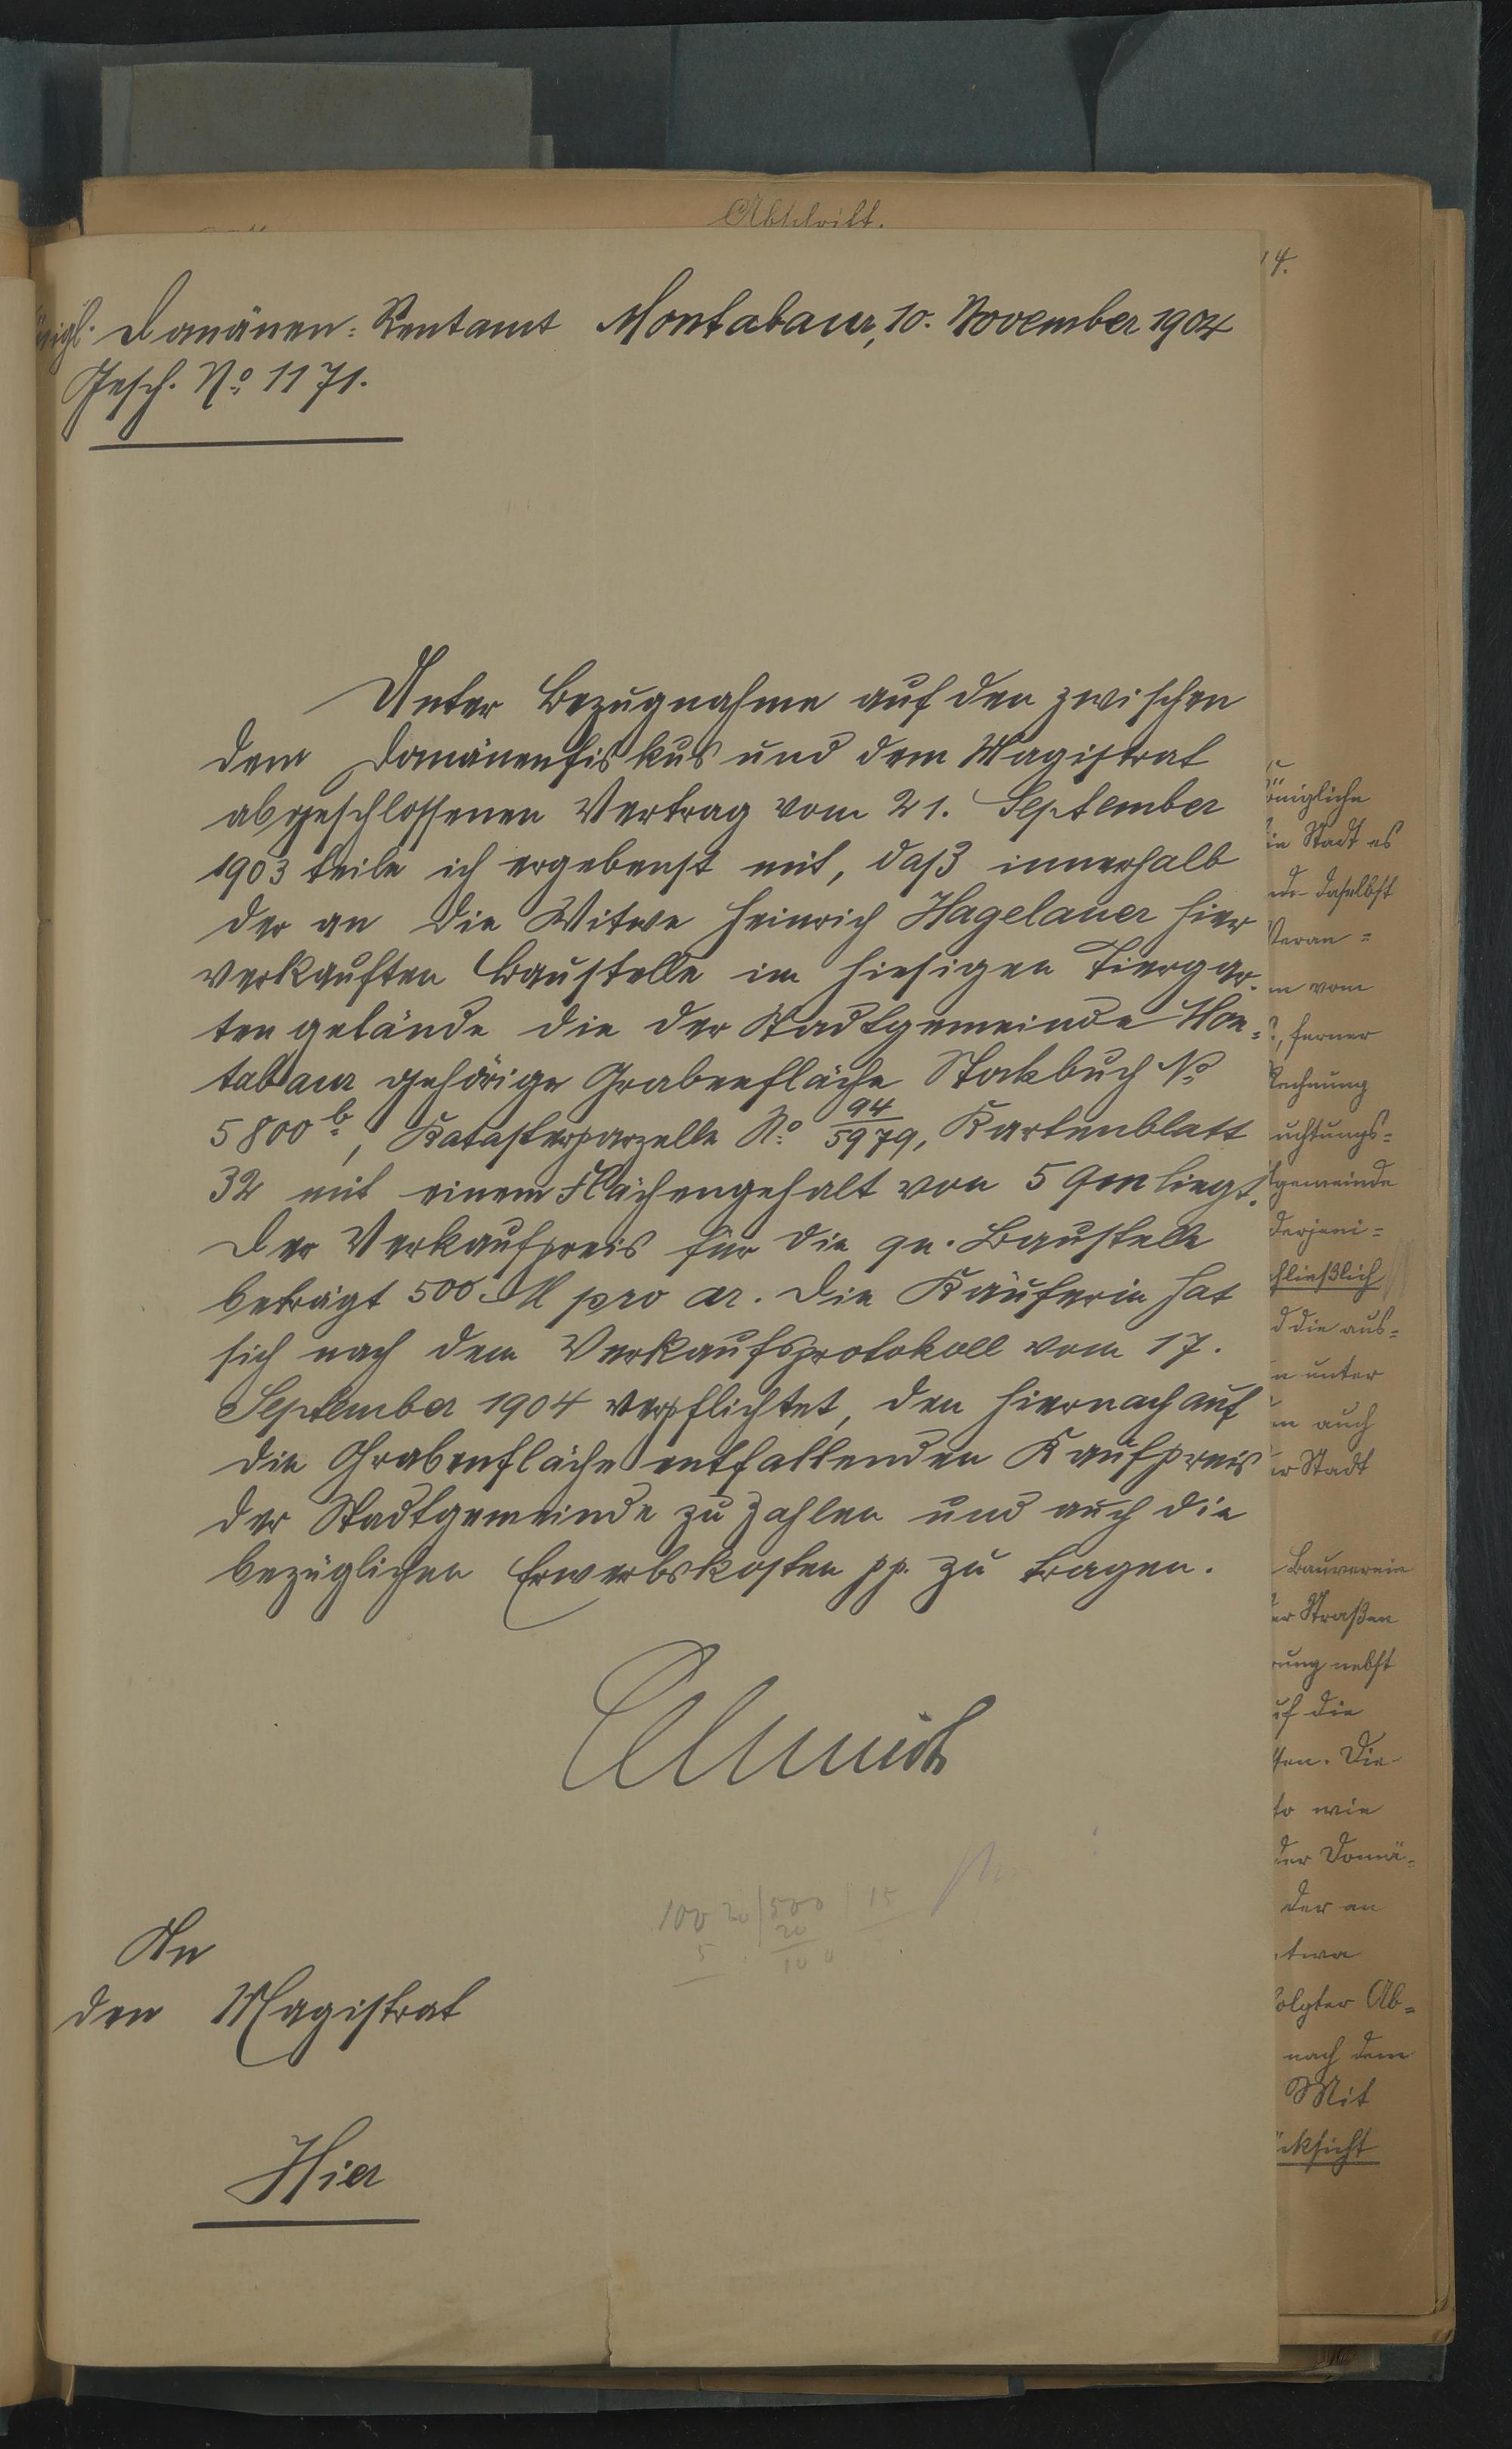 Abschrift.
4.
Königl. Domänen-Rentamt Montabaur, 10. November 1904
Gesch. No 1171.
Unter Bezugnahme auf den zwischen
dem Domänenfiskus und dem Magistrat
abgeschlossenen Vertrag vom 21. September
1903 teile ich ergebenst mit, daß innerhalb
der an die Witwe Heinrich Hagelauer hier
verkauften Baustelle im hiesigen Tiergar-
tengelände die der Stadtgemeinde Mon-
tabaur gehörige Grabenfläche Stockbuch No
5800 b, Katasterparzelle No 94/5979, Kartenblatt
32 mit einem Flächengehalt von 5 qm liegt.
Der Verkaufpreis für die qu. Baustelle
beträgt 500 M pro ar. Die Käuferin hat
sich nach dem Verkaufsprotokoll vom 17.
September 1904 verpflichtet, den hiernach auf
die Grabenfläche entfallenden Kaufpreis
der Stadtgemeinde zu zahlen und auch die
bezüglichen Erwerbskosten pp. zu tragen.
100 20 | 500 | 15
5 20
100
An
den Magistrat
Hier
önigliche
die Stadt es
daselbst
Veran=
vom
, ferner
Rechnung
uchtungs=
gemeinde
derjeni=
schließlich
d die aus=
n unter
auch
Stadt
Bauverein
er Straßen
rung nebst
uf die
ten. Die
so wie
der Domä=
der an
etwa
folgter Ab=
nach dem
Mit
ücksicht